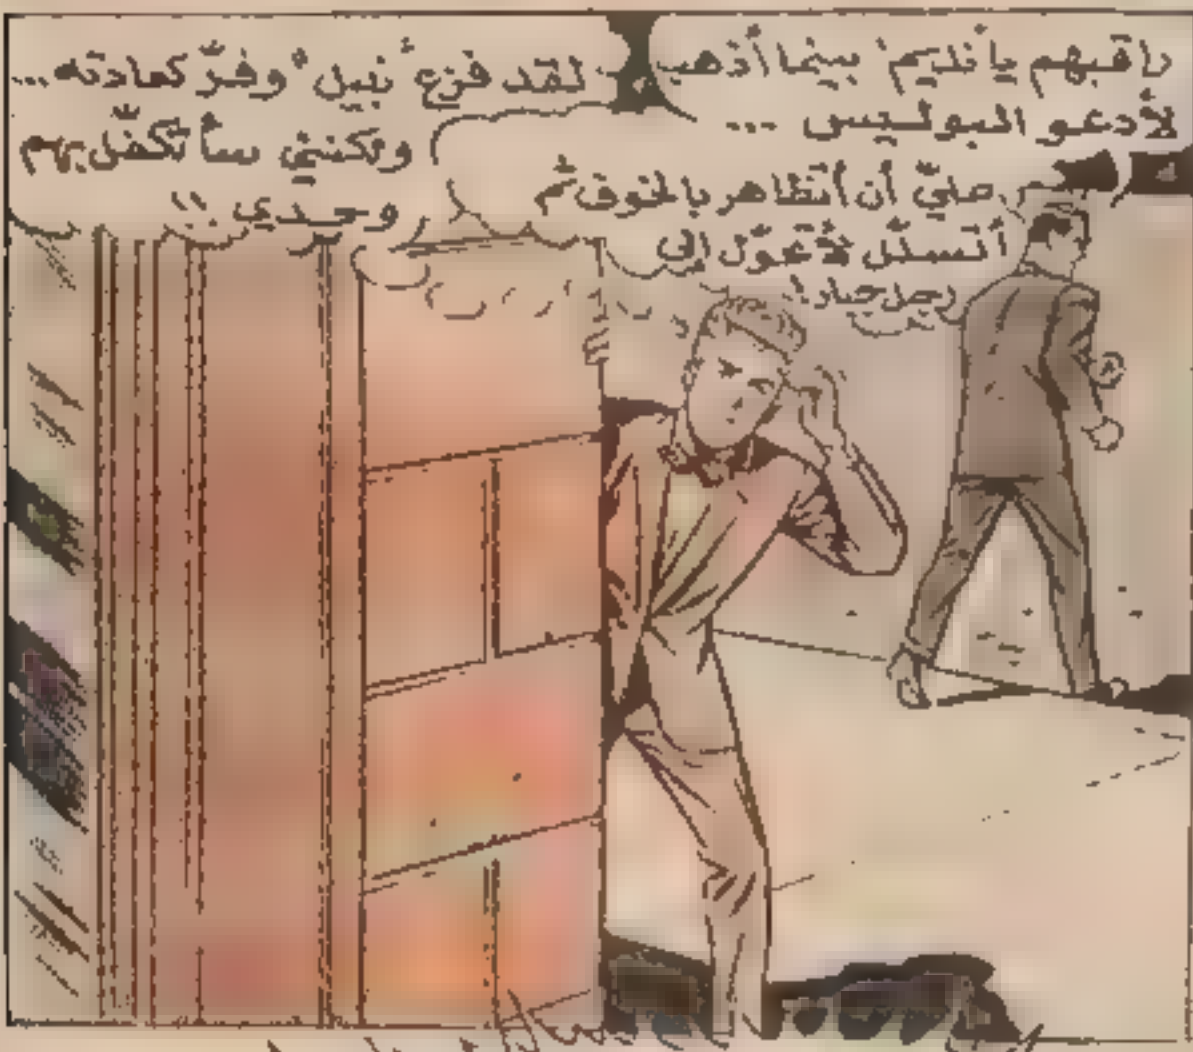 راقبهم يا "نديم" بينما أذهب
لأدعو البوليس ...
عليّ أن أتظاهر بالخوف ثم
أتسلّل لأتحوّل إلى
رجل جبار!
لقد فزع "نبيل" وفرّ كعادته ...
ولكنني سأتكفّل بهم
وحدي !!